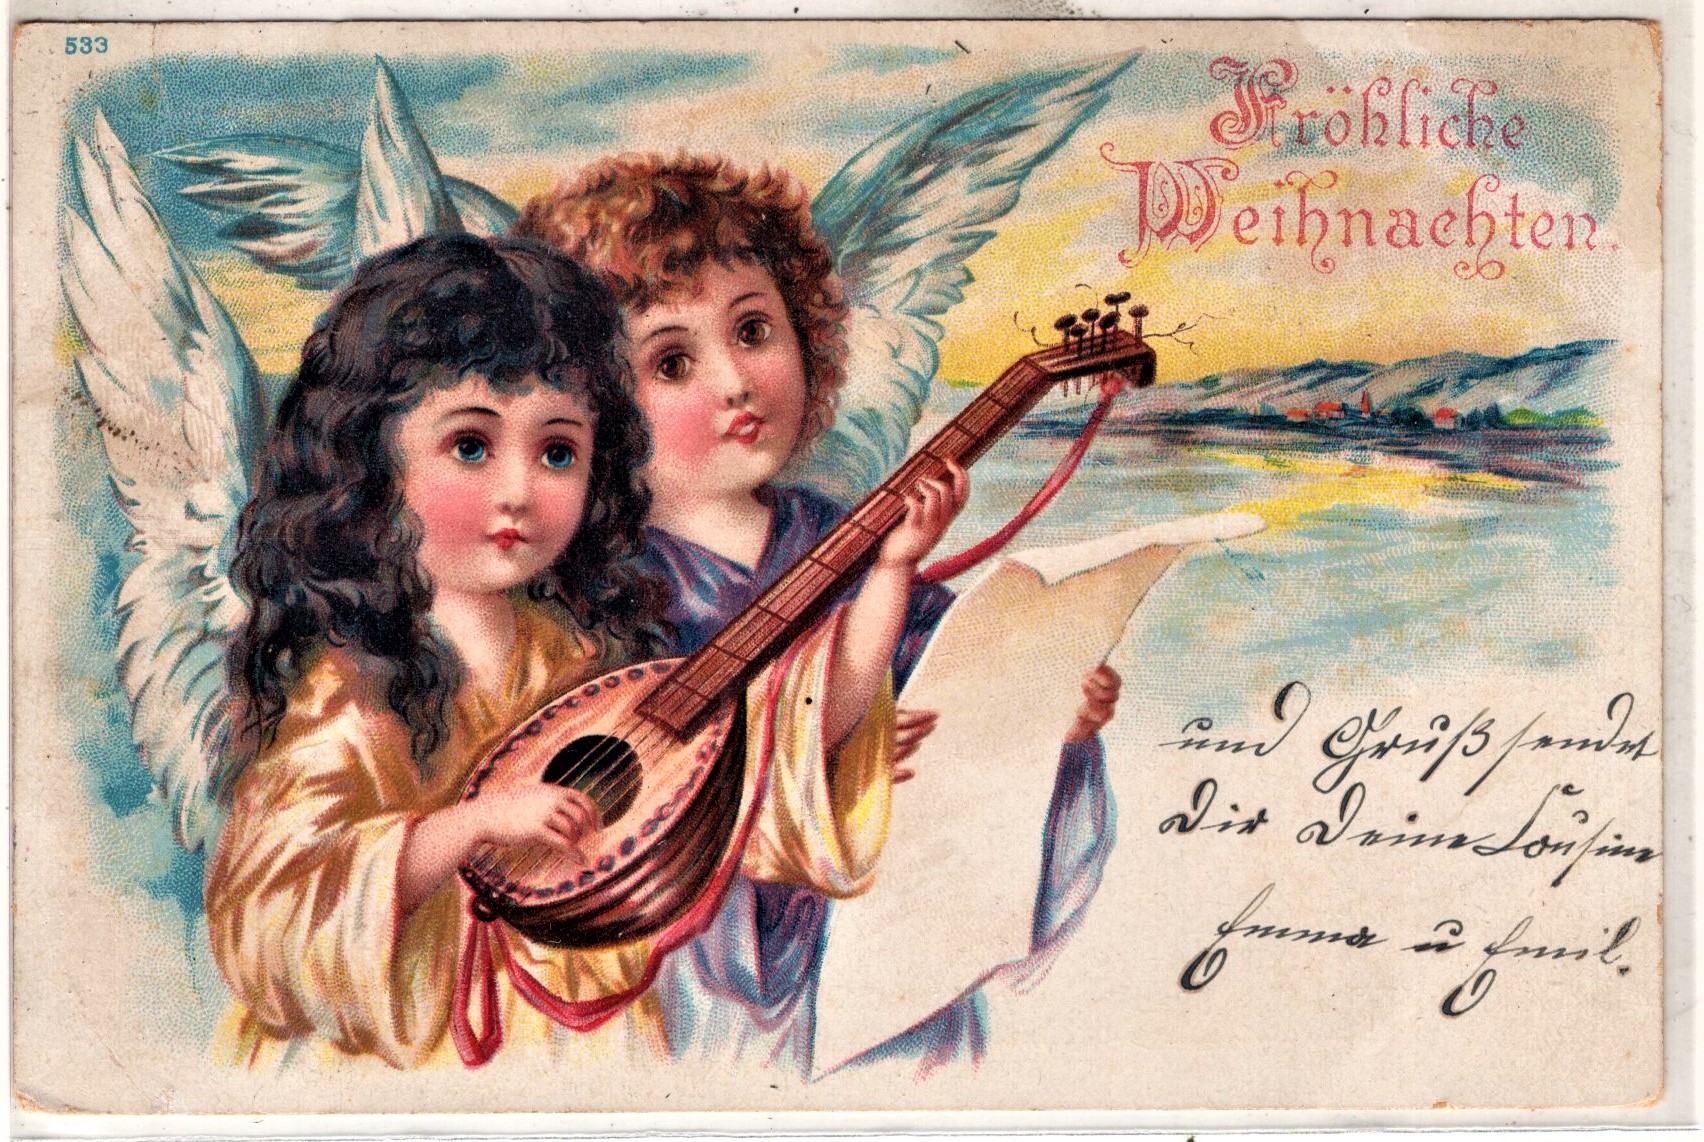 533
Fröhliche
Weihnachten.
und Gruß sendet
Dir Deine Cousine
Emma u Emil.